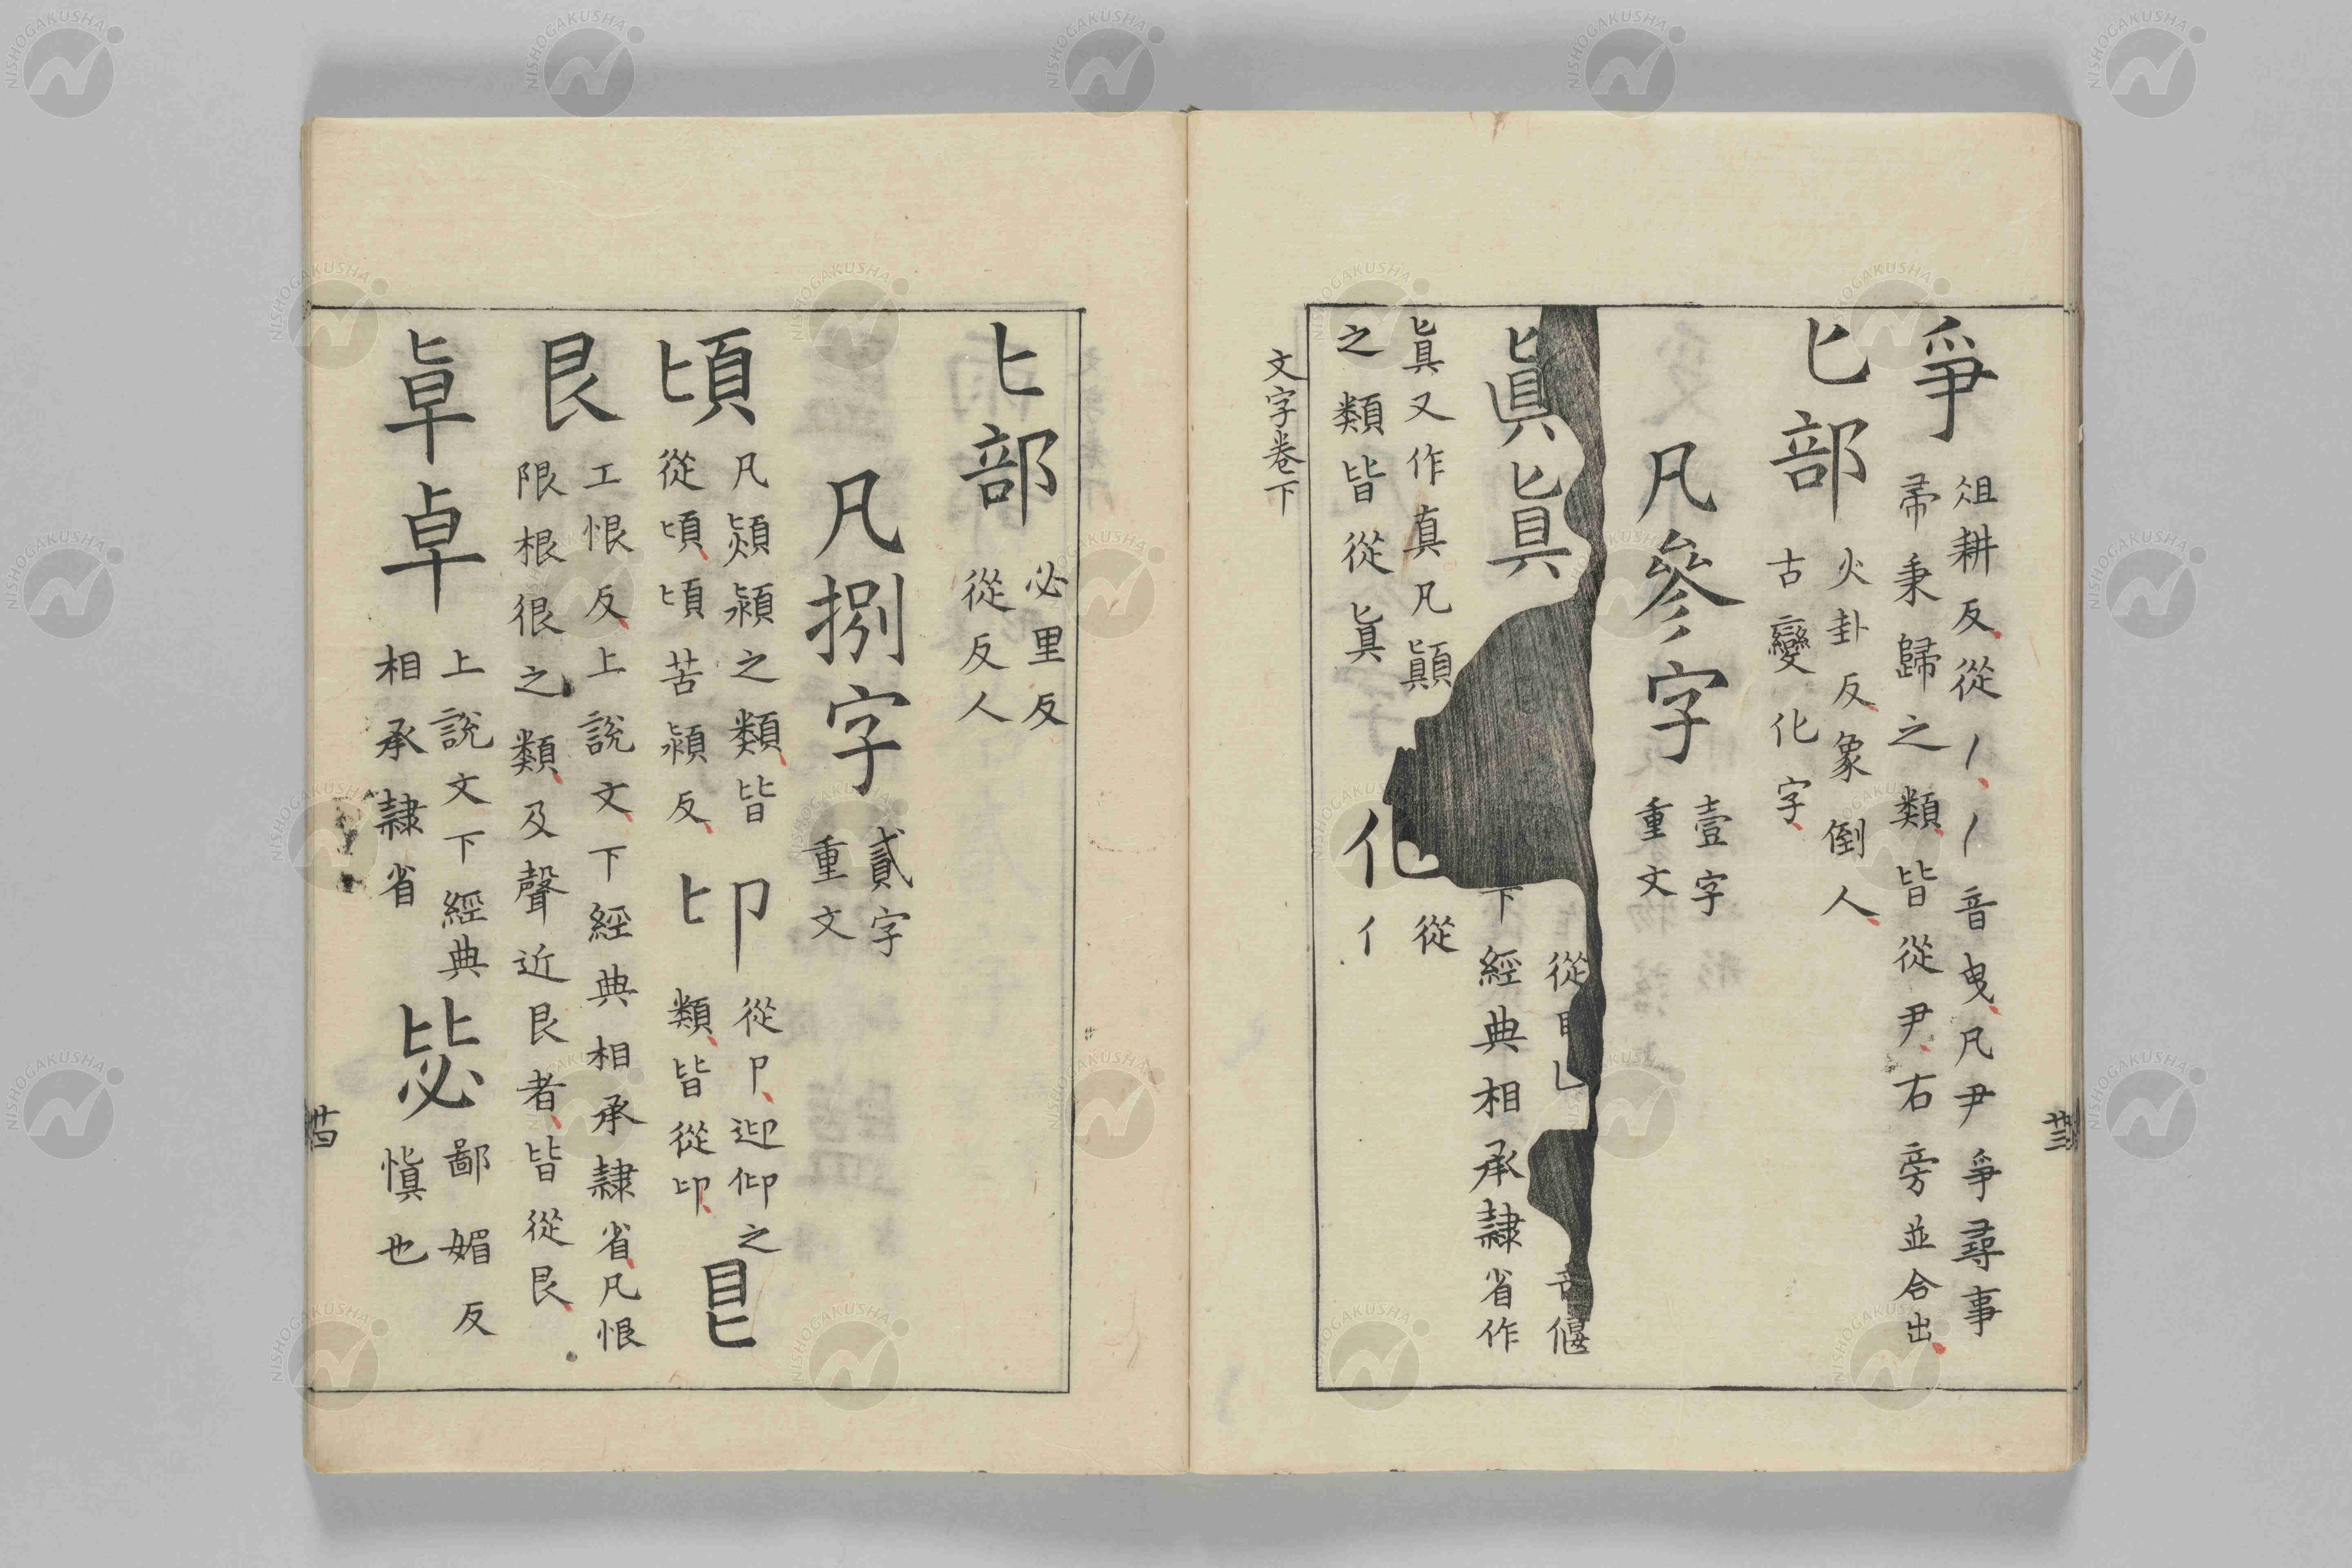 爭 俎耕反從丿丿音曳凡尹爭尋事
帚秉歸之類皆從尹右旁並合出
𠤎部 火卦反象倒人
古變化字
凡參字 壹字
重文
眞眞 從目乚 偃
下經典相承隷省作
眞又作真凡顚 化 從
之類皆從眞 亻
文字卷下
廿三
匕部 必里反
從反人
凡捌字 貳字
重文
頃 凡熲潁之類皆 𠨐 從卪迎仰之 㫐
從頃頃苦潁反 類皆從卬
艮 工恨反上說文下經典相承隷省凡恨
限根很之類及聲近艮者皆從艮
𠦝卓 上說文下經典 毖 鄙媚反
相承隷省 愼也
廿四
NISHOGAKUSHA